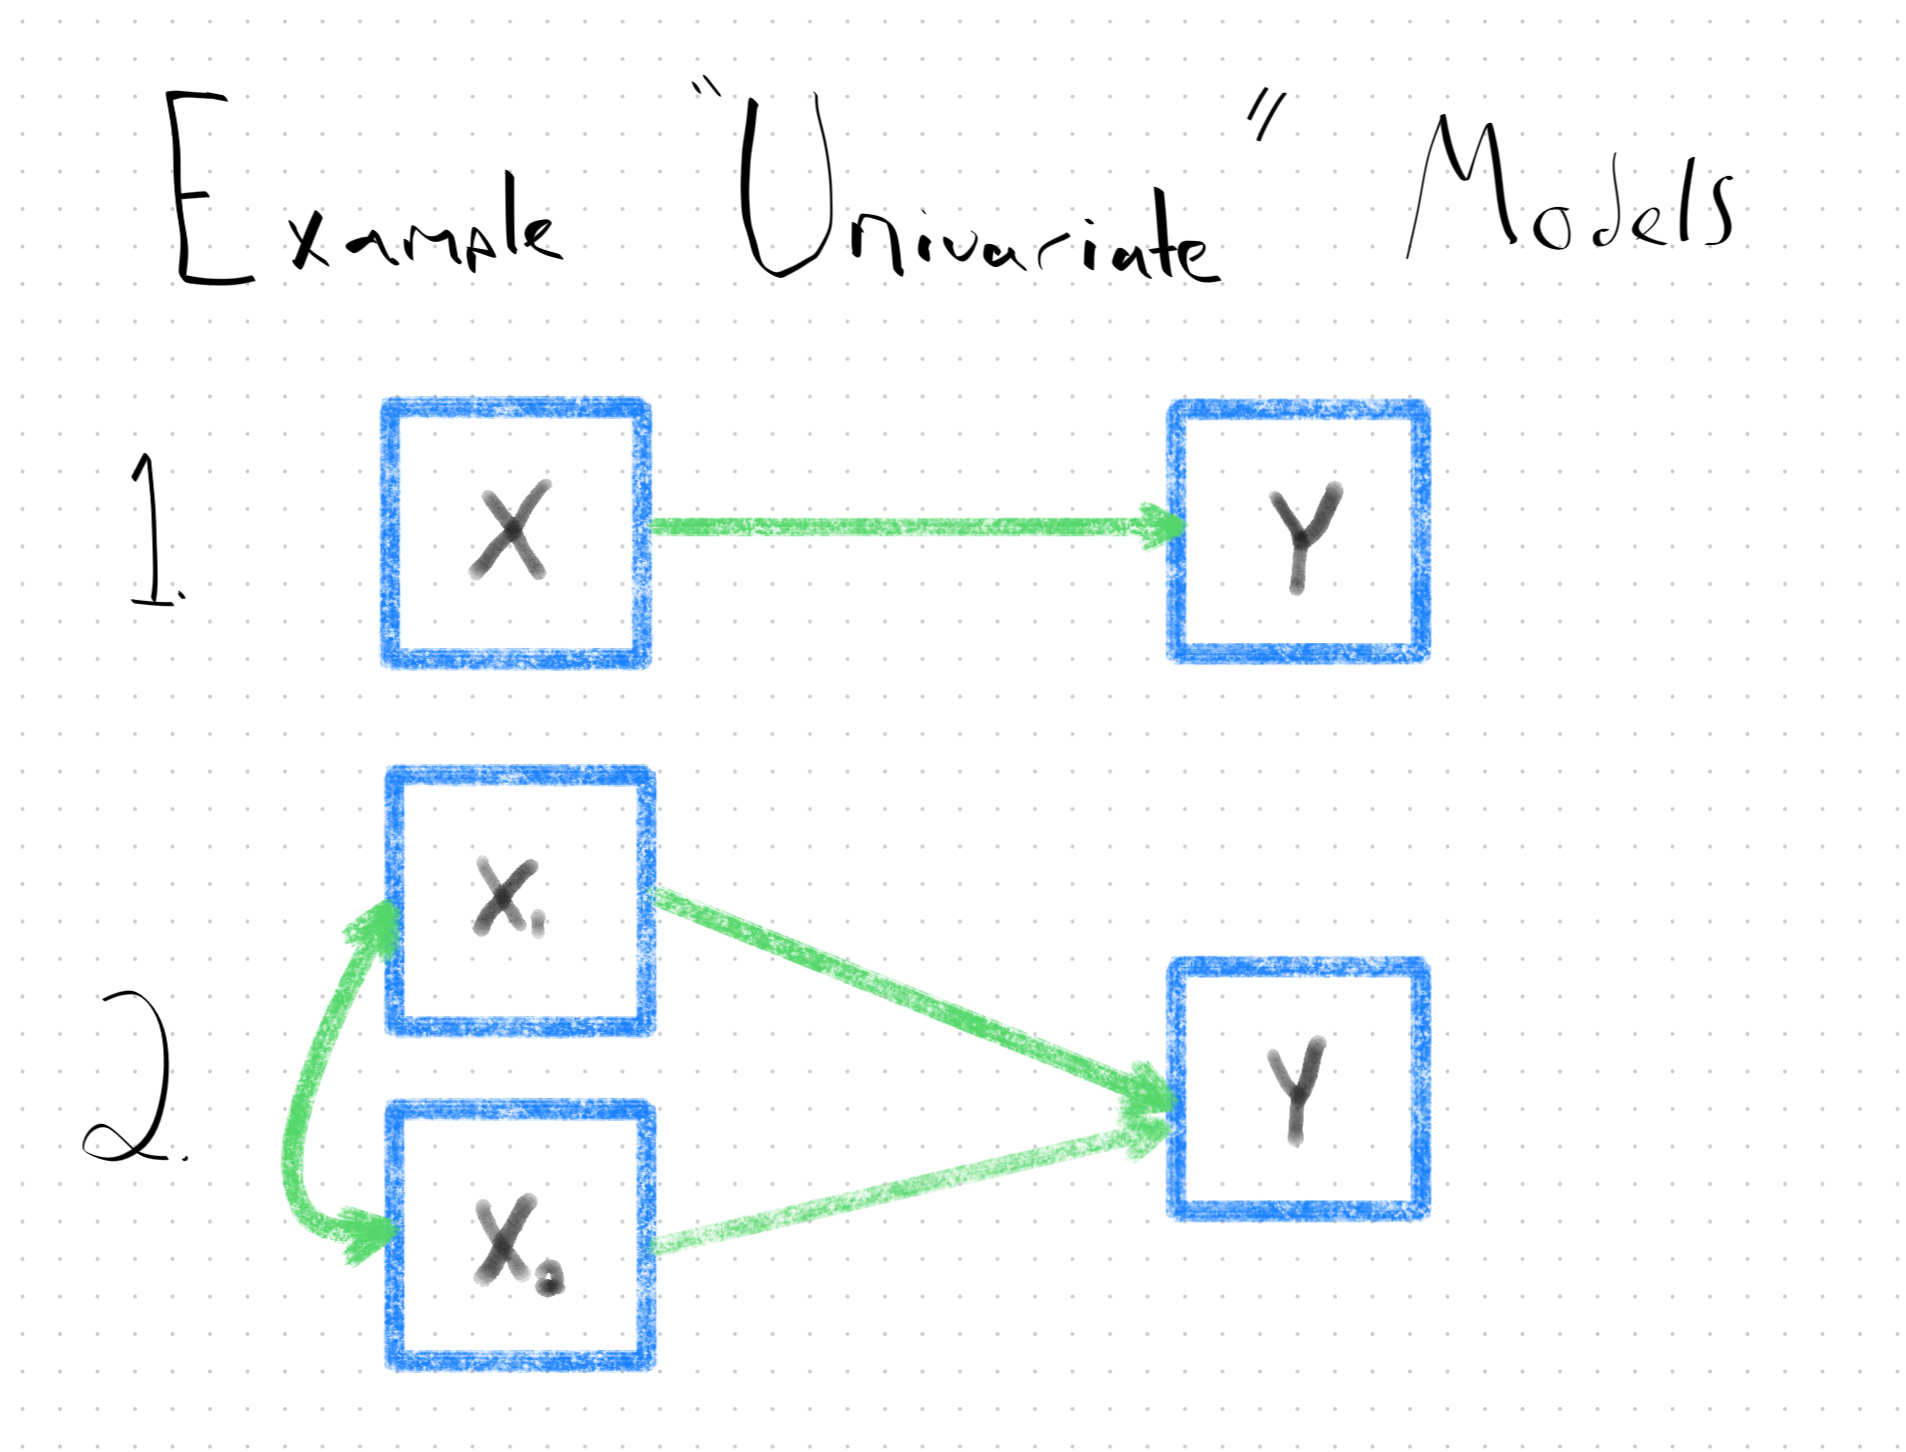 Example "Univariate" Models
1. X Y
X₁
2. Y
X₂